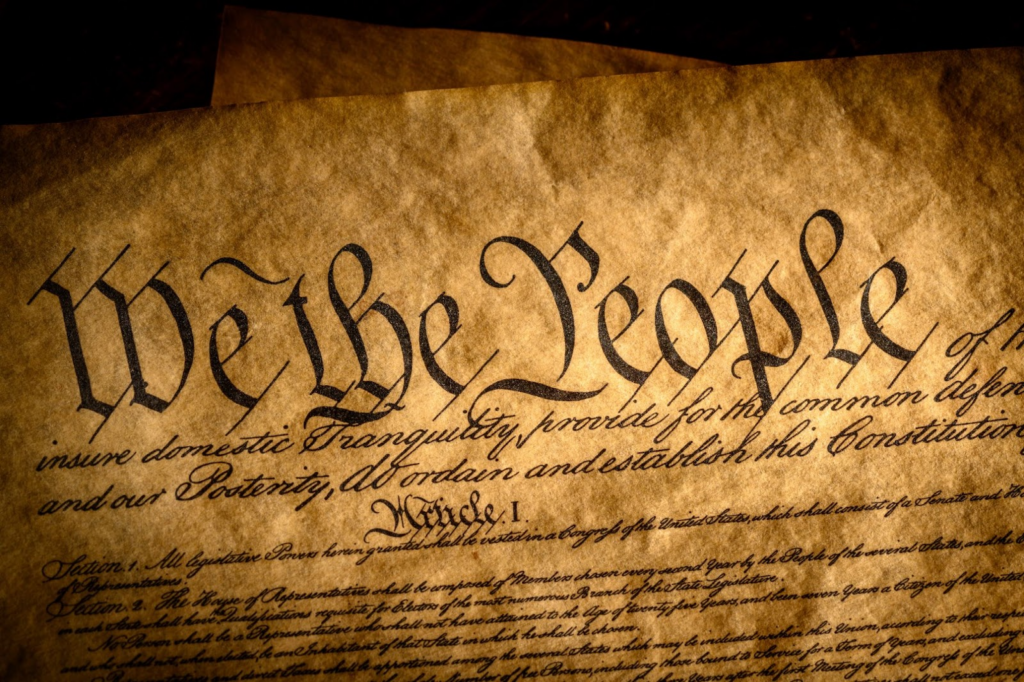 We the People
of
insure domestic Tranquility, provide for the common defen
and our Posterity, do ordain and establish this Constitution
Article. I.
Section. 1. All legislative Powers herein granted shall be vested in a Congress of the United States, which shall consist of a Senate and
of Representatives.
Section. 2. The House of Representatives shall be composed of Members chosen every second Year by the People of the several States, and the
in each State shall have the Qualifications requisite for Electors of the most numerous Branch of the State Legislature.
No Person shall be a Representative who shall not have attained to the Age of twenty five Years, and been seven Years a Citizen of the United
and who shall not, when elected, be an Inhabitant of that State in which he shall be chosen.
shall be apportioned among the several States which may be included within this Union, according to their
of free Persons, including those bound to Service for a Term of Years, and excluding
Years after the first Meeting of the Congress of the